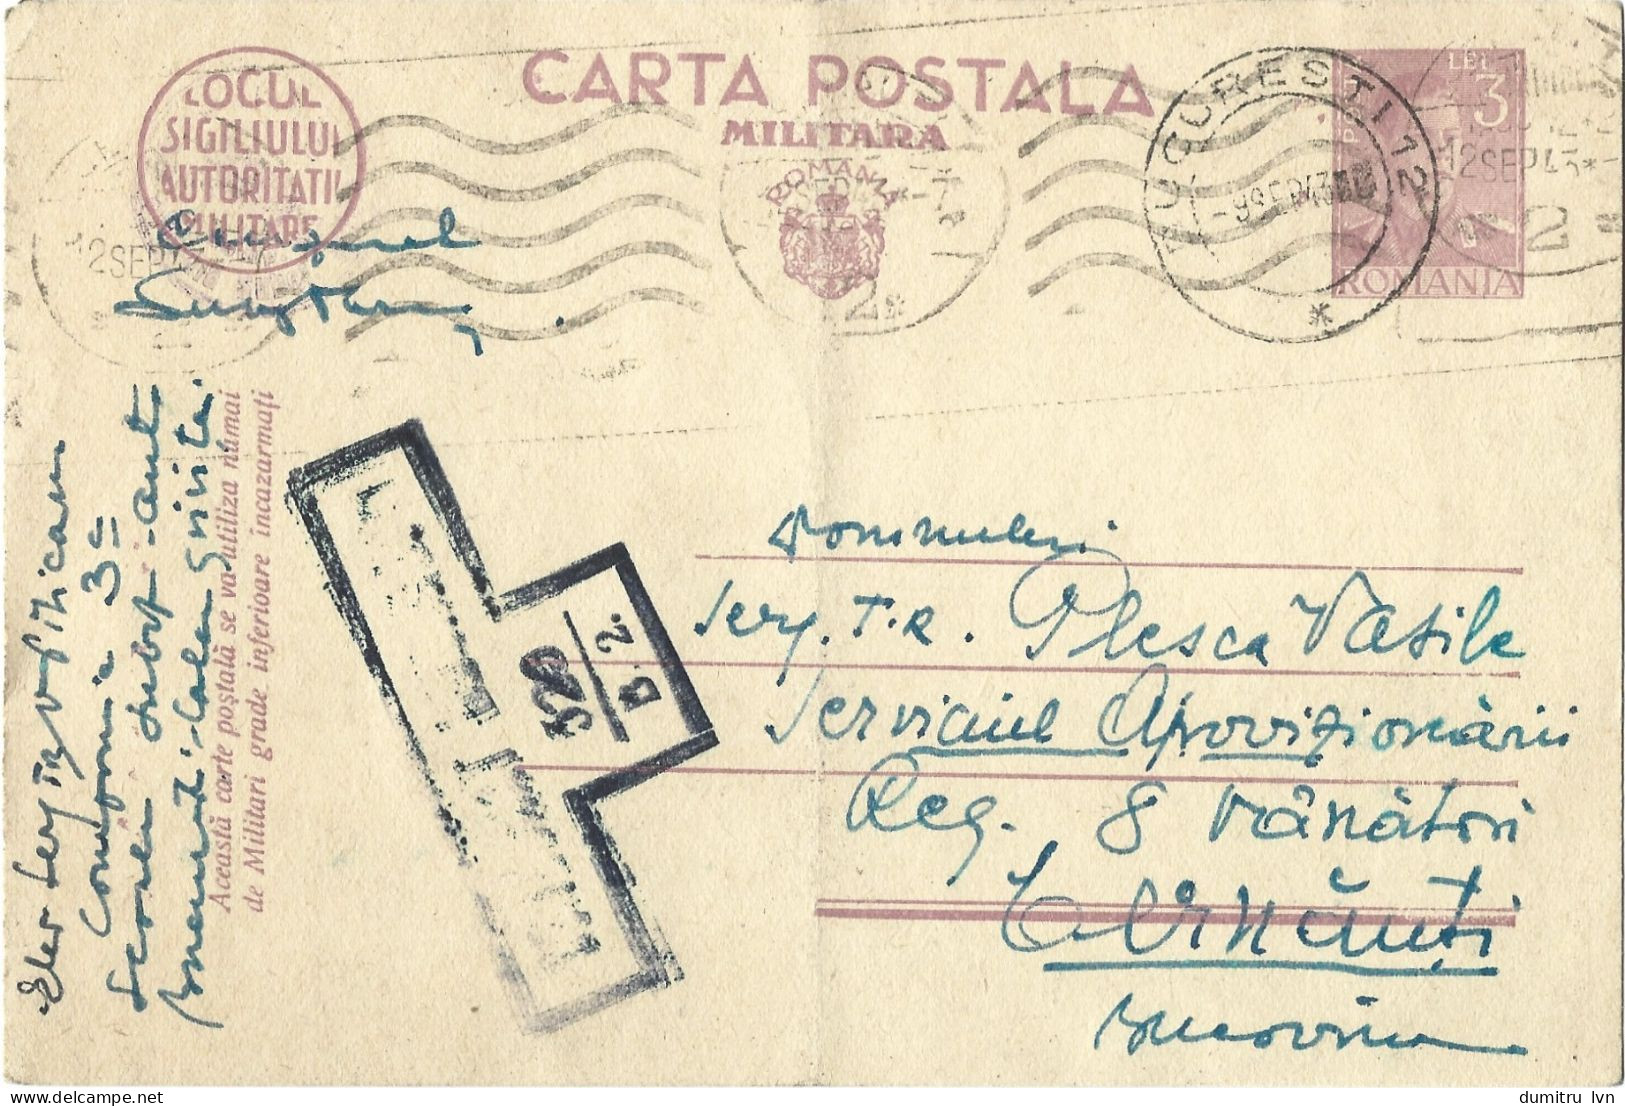 CARTA POSTALA
MILITARA
ROMANIA
LOCUL
SIGILIULUI
AUTORITATII
MILITARE
LEI 3
ROMANIA
BUCURESTI 12
-9 SEP. 43
12 SEP 43
12 SEP 43
2
Această carte poştală se va utiliza numai
de Militari grade inferioare incazarmaţi
Elev Serg
Compania 3
Bucureşti-Calea Griviţa.
B-2.
Domnului
Serg. T.R. Plesca Vasile
Serviciul Aprovizionării
Reg. 8 Vânători
Cernăuţi
Bucovina
dumitru lvn